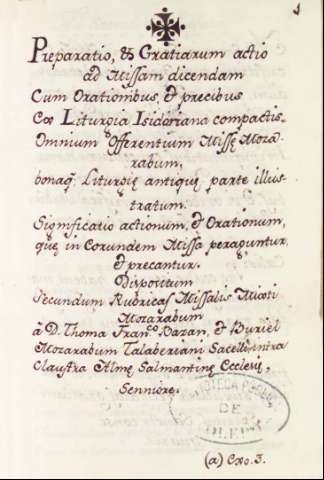 Preparatio, & Gratiarum actio
ad Missam dicendam
Cum Orationibus, & precibus
Ex Liturgia Isidoriana compactis
Omnium Offerentium Missę Moza-
rabum,
bonaq̃ Liturgię antiquę parte illus-
tratum.
Significatio actionum, & Orationum,
quę in Eorundem Missa peraguntur
& precantur.
Dispositum
Secundum Rubricas Missalis Mixti
Mozarabum
à D. Thoma Fran.co Bazan, & Buriel
Mozarabum Talaberiani Sacelli, intra
Claustra Almę Salmantinę Ecclesię,
Senniore.
DE
(a) Exo. 3.